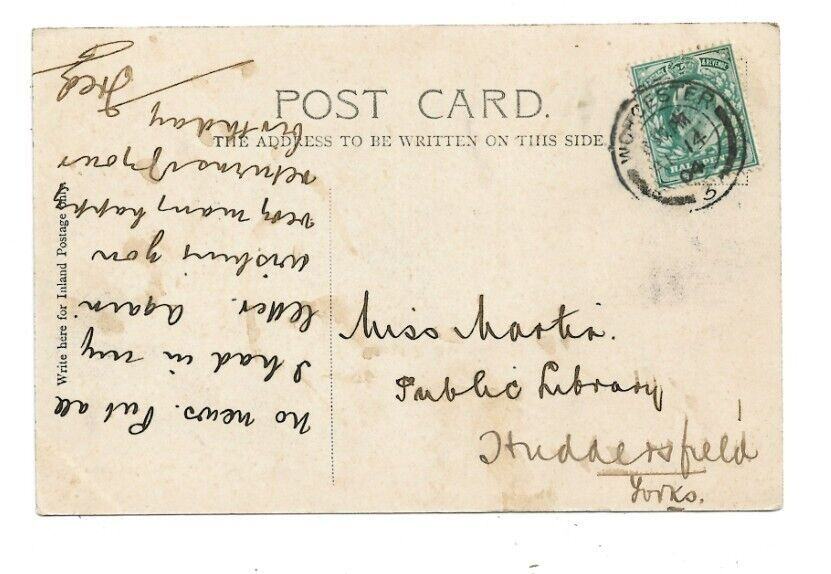 POST CARD.
THE ADDRESS TO BE WRITTEN ON THIS SIDE.
Write here for Inland Postage only.
no news. Put all
I had in my
letter. Again
wishing you
very many happy
returns of your
birthday
Fred
& REVENUE
HALFPENNY
WORCESTER
14
04
5
Miss Martin.
Public Library
Huddersfield
Yorks.